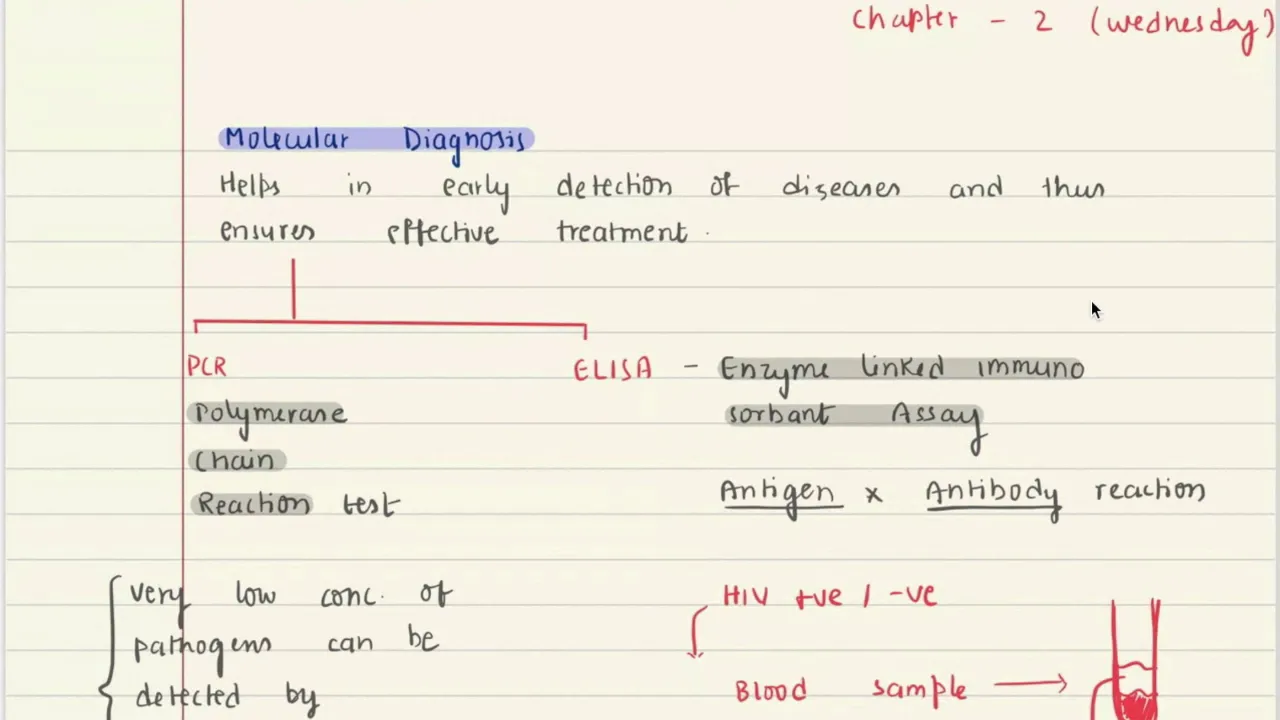 Chapter - 2 (Wednesday)
Molecular Diagnosis
Helps in early detection of diseases and thus
ensures effective treatment.
PCR
Polymerase
Chain
Reaction test
very low conc. of
pathogens can be
detected by
ELISA - Enzyme linked immuno
sorbant Assay
Antigen x Antibody reaction
HIV +ve / -ve
Blood sample